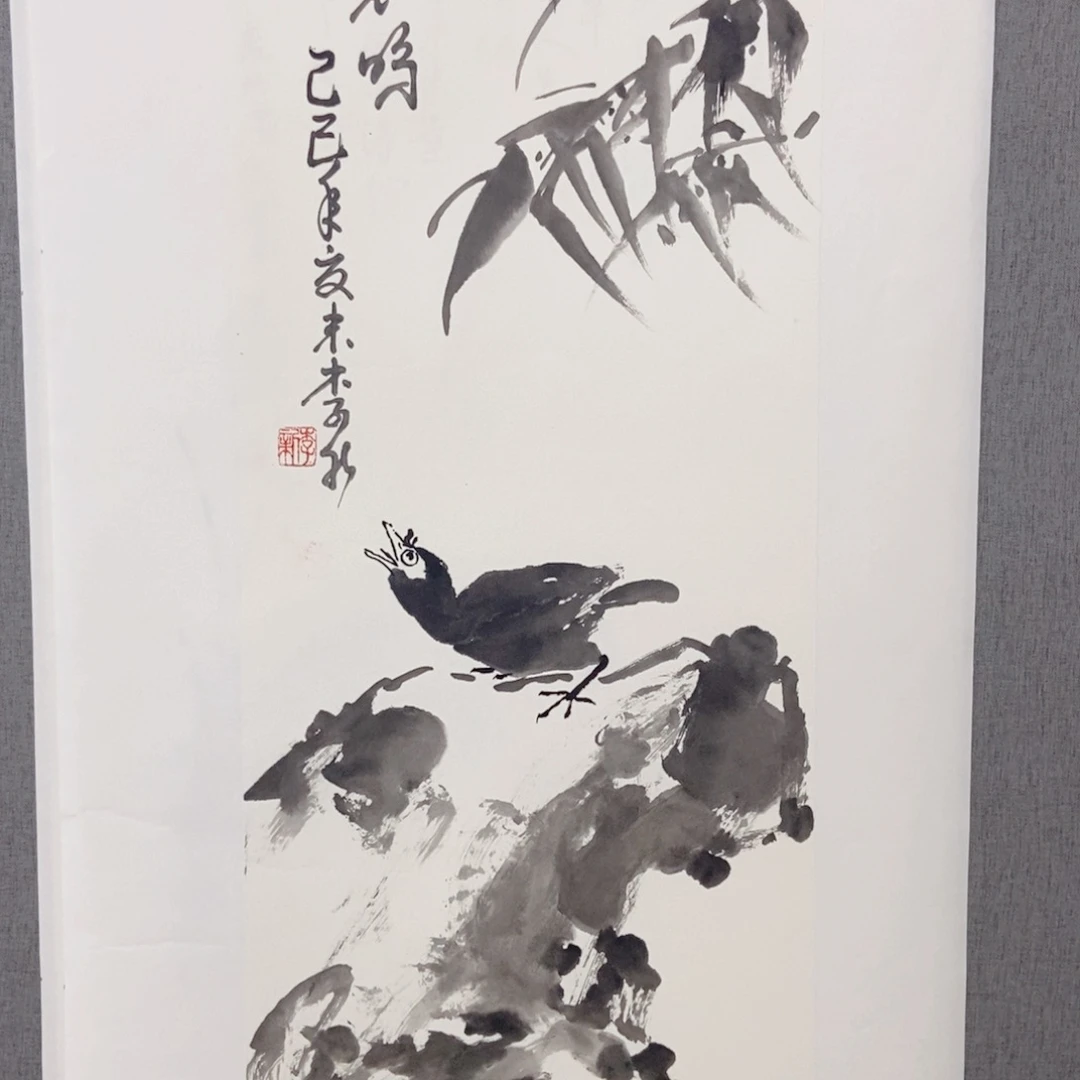 鸣
己巳年夏末李